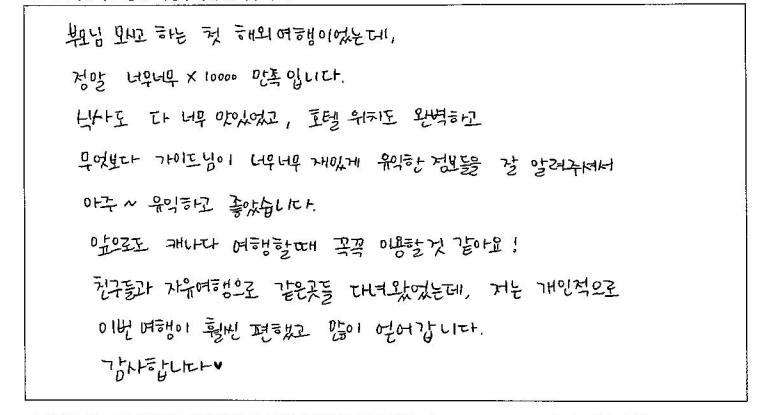 부모님 모시고 하는 첫 해외여행이었는데,
정말 너무너무 × 10000 만족입니다.
식사도 다 너무 맛있었고, 호텔 위치도 완벽하고
무엇보다 가이드님이 너무너무 재밌게 유익한 정보들을 잘 알려주셔서
아주~ 유익하고 좋았습니다.
앞으로도 캐나다 여행할때 꼭꼭 이용할것 같아요!
친구들과 자유여행으로 같은곳들 다녀왔었는데, 저는 개인적으로
이번 여행이 훨씬 편했고 많이 얻어갑니다.
감사합니다♥